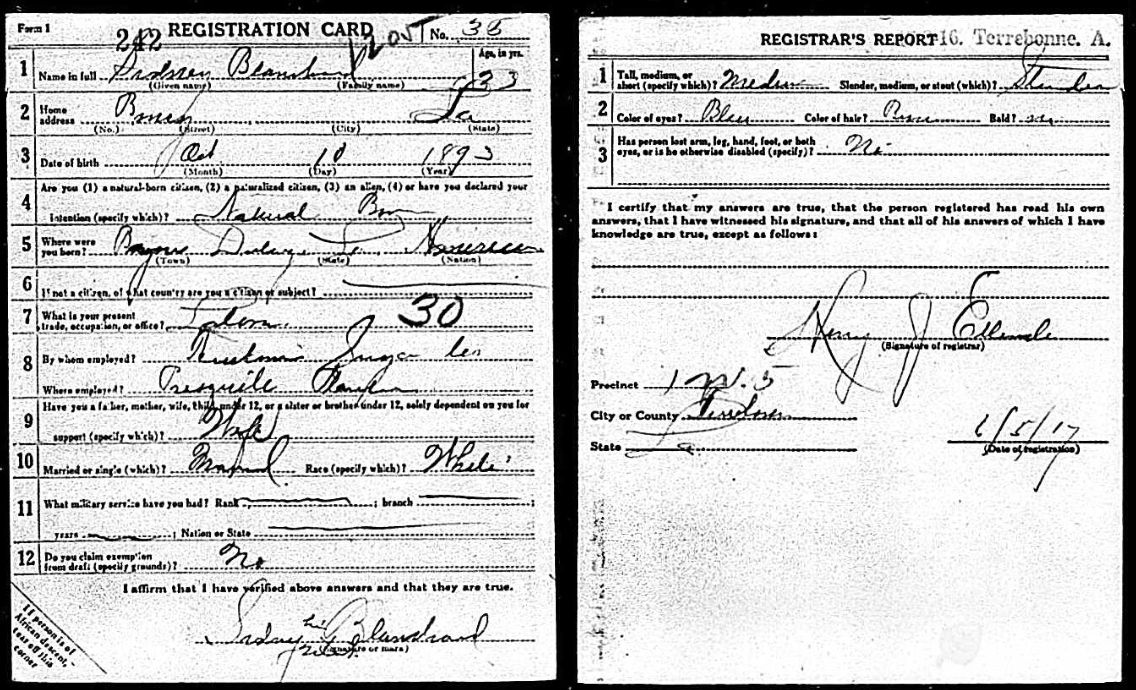 Form 1
242 REGISTRATION CARD No. 38
1205
Age, in yrs.
1 Name in full Sidney Blanchard 23
(Given name) (Family name)
2 Home address Bourg La
(No.) (Street) (City) (State)
3 Date of birth Oct 10 1893
(Month) (Day) (Year)
4 Are you (1) a natural-born citizen, (2) a naturalized citizen, (3) an alien, (4) or have you declared your
intention (specify which)? Natural Born
5 Where were you born? Bayou La American
(Town) (State) (Nation)
6 If not a citizen, of what country are you a citizen or subject?
7 What is your present trade, occupation, or office? 30
8 By whom employed? Sugar
Where employed? Presquille
9 Have you a father, mother, wife, child under 12, or a sister or brother under 12, solely dependent on you for
support (specify which)? Wife
10 Married or single (which)? Married Race (specify which)? White
11 What military service have you had? Rank ; branch ;
years ; Nation or State
12 Do you claim exemption from draft (specify grounds)? No
I affirm that I have verified above answers and that they are true.
Sidney his Blanchard
mark
(Signature or mark)
If person is of
African descent,
tear off this
corner
REGISTRAR'S REPORT 16. Terrebonne. A.
1 Tall, medium, or short (specify which)? Medium Slender, medium, or stout (which)? Slender
2 Color of eyes? Blue Color of hair? Brown Bald? No
3 Has person lost arm, leg, hand, foot, or both eyes, or is he otherwise disabled (specify)? No
I certify that my answers are true, that the person registered has read his own
answers, that I have witnessed his signature, and that all of his answers of which I have
knowledge are true, except as follows:
Henry J Ellender
(Signature of registrar)
Precinct 1 W. 5
City or County Terrebonne
State La
6/5/17
(Date of registration)